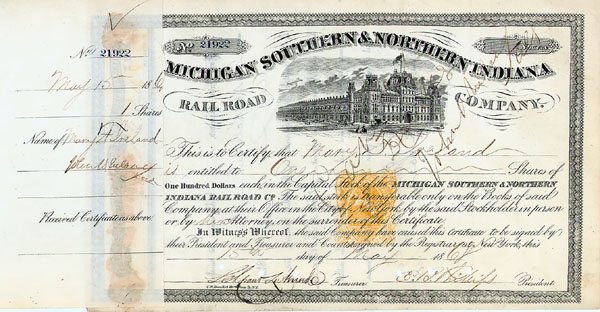 No. 21922
May 15 186
1 Shares
Name of Mary Ireland
Received Certificate as above
No 21922
1 Shares
MICHIGAN SOUTHERN & NORTHERN INDIANA
RAIL ROAD COMPANY.
This is to Certify, that Mary Ireland
is entitled to One Shares of
One Hundred Dollars each, in the Capital Stock of the MICHIGAN SOUTHERN & NORTHERN
INDIANA RAIL ROAD Co. The said stock is transferable only on the Books of said
Company, at their Office in the City of New York, by the said Stockholder in person
or by Attorney, on the surrender of this Certificate.
In Witness Whereof, the said Company have caused this certificate to be signed by
their President and Treasurer and Countersigned by the Registrar, at New York, this
15th day of May 186
Treasurer President.